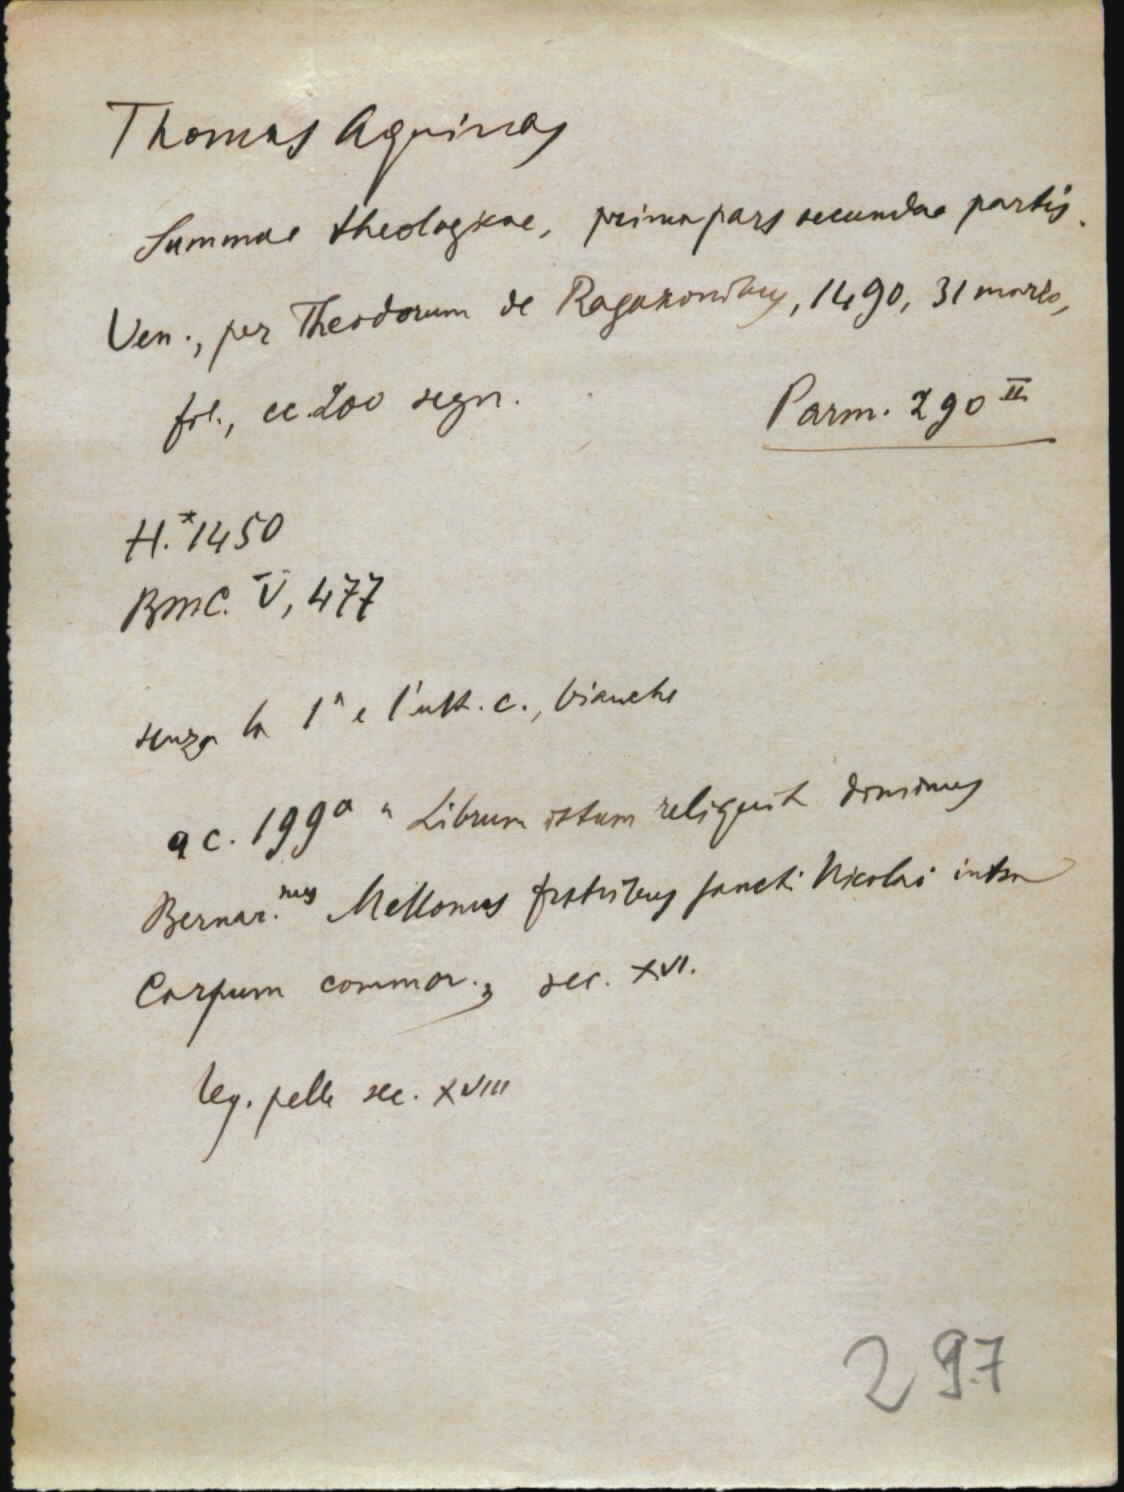 Thomas Aquinas
Summae theologicae, prima pars secundae partis.
Ven., per Theodorum de Ragazonibus, 1490, 31 marzo,
fol., cc. 200 segn.
Parm. 290 II
H. *1450
BMC. V, 477
senza la 1ª e l'ult. c., bianche
a c. 199ª "Librum istum reliquit dominus
Bernar.nus Mellonus fratribus sancti Nicolai intra
Carpum commor.", sec. XVI.
leg. pelle sec. XVIII
297